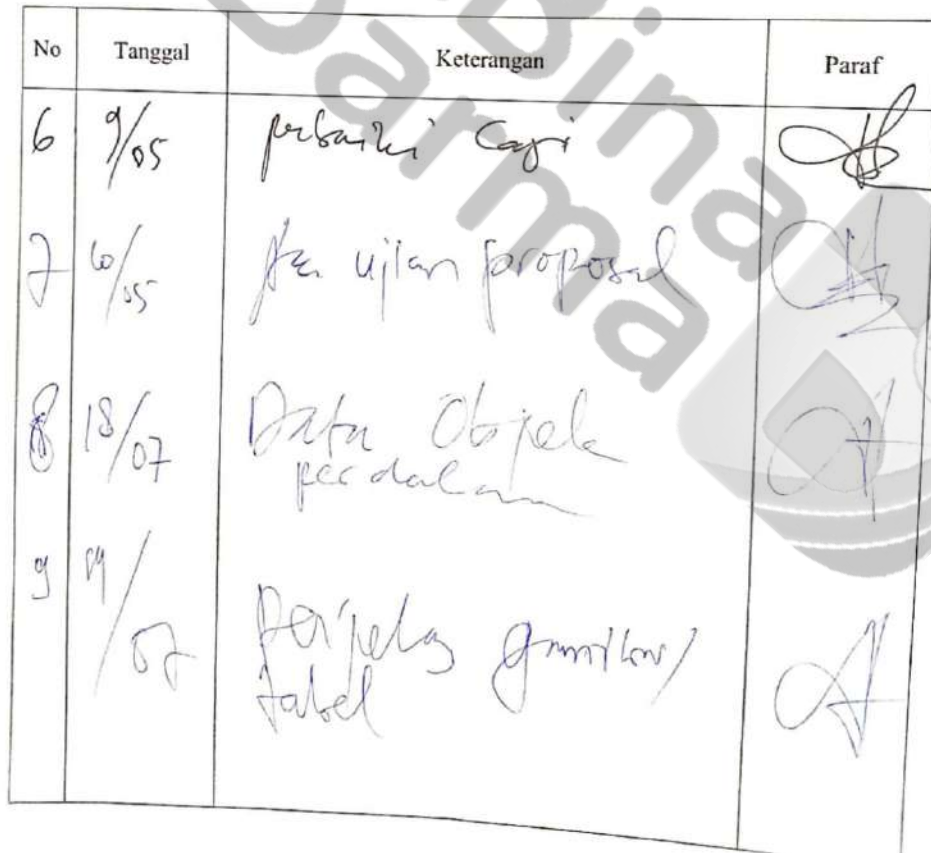 No Tanggal Keterangan Paraf
6 9/05 perbaiki lagi
7 10/05 Acc ujian proposal
8 18/07 Data Objek
perdalam
9 /07 perjelas gambar/
tabel
Bina
Darma